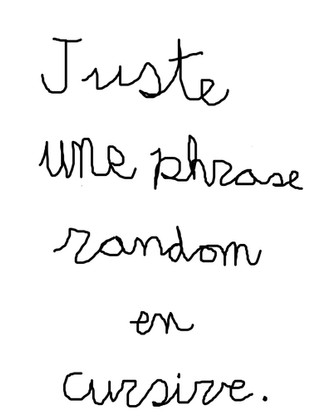 Juste
une phrase
random
en
cursive.